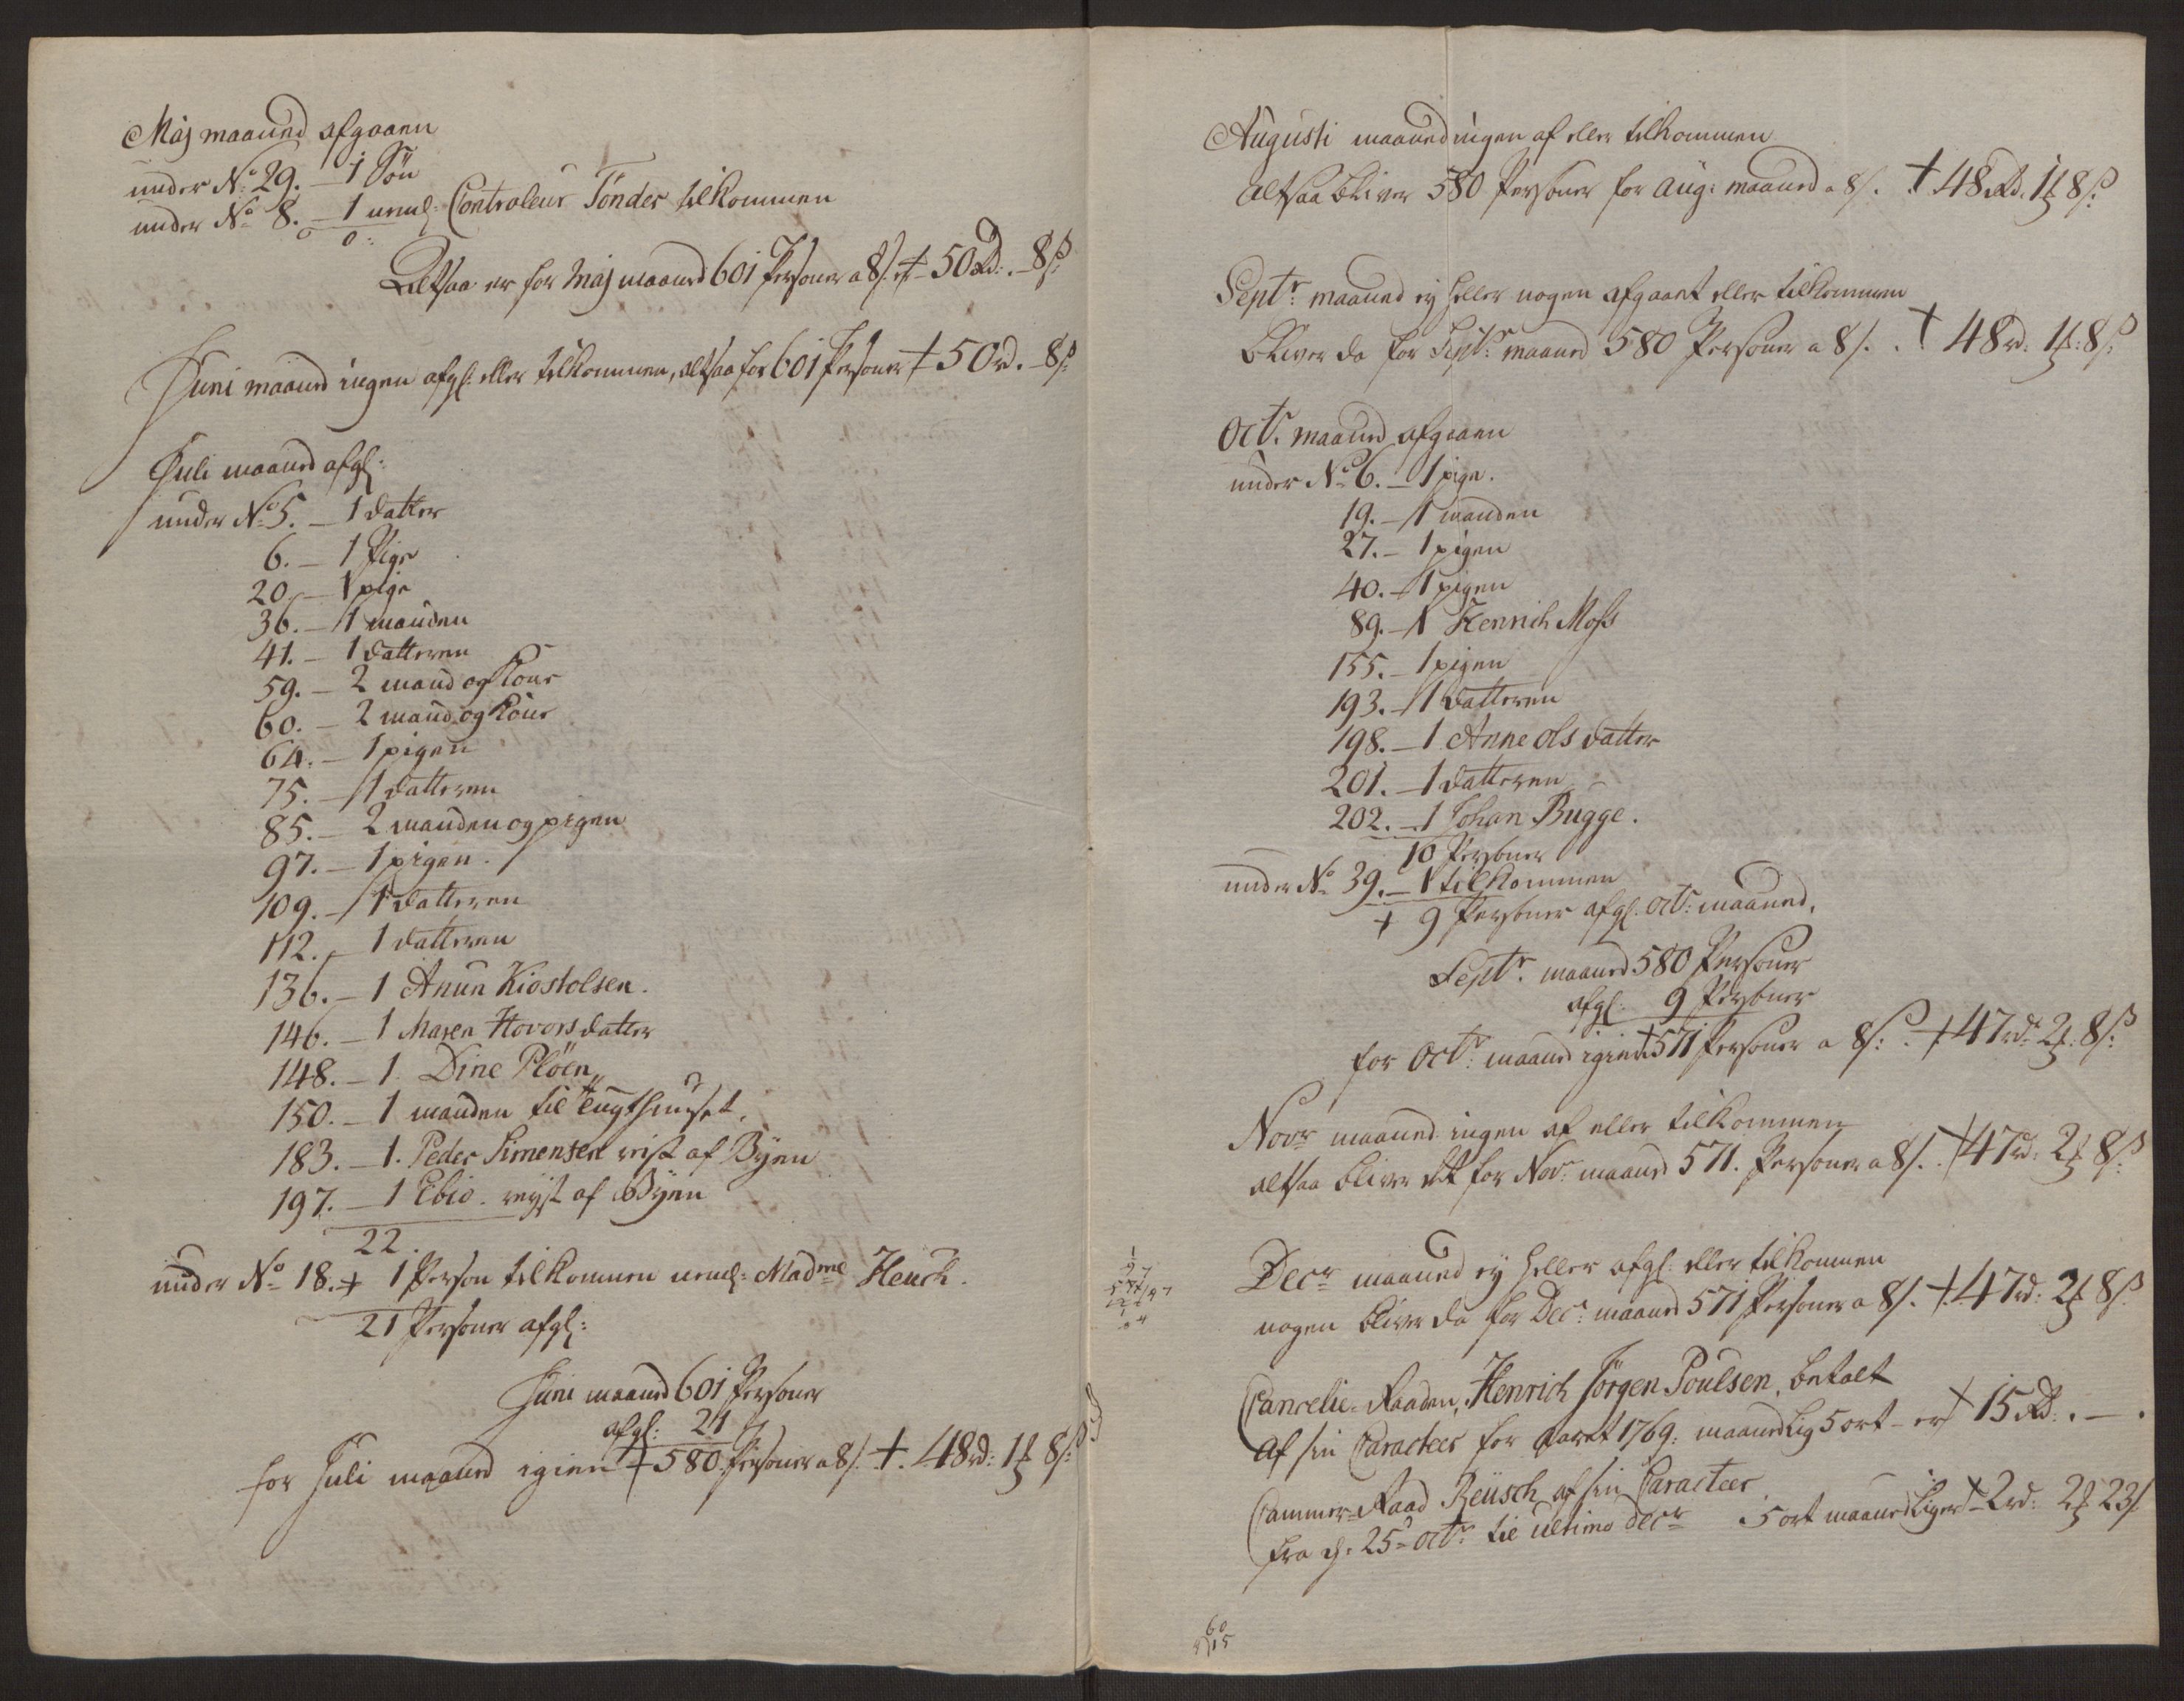 Maj maaned afgaaen
under No 29. – 1 Søn
under No 8. – 1 neml: Controleur Tönder tilkommen
0 0:
Altsaa er for Maj maaned 601 Personer a 8s er 50 Rd: . 8s:
Juni maaned ingen afgl: eller tilkommen, altsaa for 601 Personer + 50 rd. – 8s:
Juli maaned afgl:
under No 5. – 1 datter
6. – 1 Pige
20. – 1 pige
36. – 1 manden
41. – 1 datteren
59. – 2 mand og Kone
60. – 2 mand og Kone
64. – 1 pigen
75. – 1 datteren
85. – 2 manden og pigen
97. – 1 pigen.
109. – 1 datteren
112. – 1 datteren
136. – 1 Anun Kiostolsen.
146. – 1 Maren Hovors datter
148. – 1. Dine Plöen
150. – 1 manden til tugthuuset.
183. – 1. Peder Simensen reist af Byen
197. – 1 Ebio. reyst af Byen
22.
under No 18. + 1 Person tilkommen neml: Madme Heuch.
21 Personer afgl:
Juni maaned 601 Personer
afgl: 21
for Juli maaned igien + 580. Personer a 8s. +. 48 rd: 1 ₰ 8s:
Augusti maaned ingen af eller tilkommen
altsaa bliver 580 Personer for Aug: maaned a 8s. + 48 Rd. 1 ₰ 8s:
Septr: maaned ey heller nogen afgaaet eller tilkommen
bliver da for Septr: maaned 580 Personer a 8s. . + 48 rd: 1 ₰: 8s:
Octr. maaned afgaaen
under No 6. – 1 pige.
19. – 1 manden
27. – 1 pigen
40. – 1 pigen
89. – 1 Henrich Moss
155. – 1 pigen
193. – 1 datteren
198. – 1 Anne Ols datter
201. – 1 datteren
202. – 1 Johan Bugge.
10 Persbner
under No 39. – 1 tilkommen
+ 9 Persbner afgl: Octr: maaned.
Septr. maaned 580 Personer
afgl: 9 Persbner
for Octr: maaned igien + 571 Personer a 8s: . + 47 rd: 2 ₰. 8s:
Novr maaned ingen af eller tilkommen
altsaa bliver det for Novr: maaned 571. Personer a 8s. . + 47 rd: 2 ₰ 8s:
Decr maaned ey heller afgl: eller tilkommen
nogen bliver da for Decr: maaned 571 Personer a 8s. + 47 rd: 2 ₰ 8s.
Cancelie-Raaden, Henrich Jörgen Poulsen, betalt
af sin Caracteer for Aaret 1769: maanedlig 5 ort – er + 15 Rd: . – .
Cammer-Raad Reusch af sin Caracteer
fra d: 25de Octr: til ultimo Decr 5 ort maanedlig er + 2 rd: 2 ₰ 23s
60
4)15